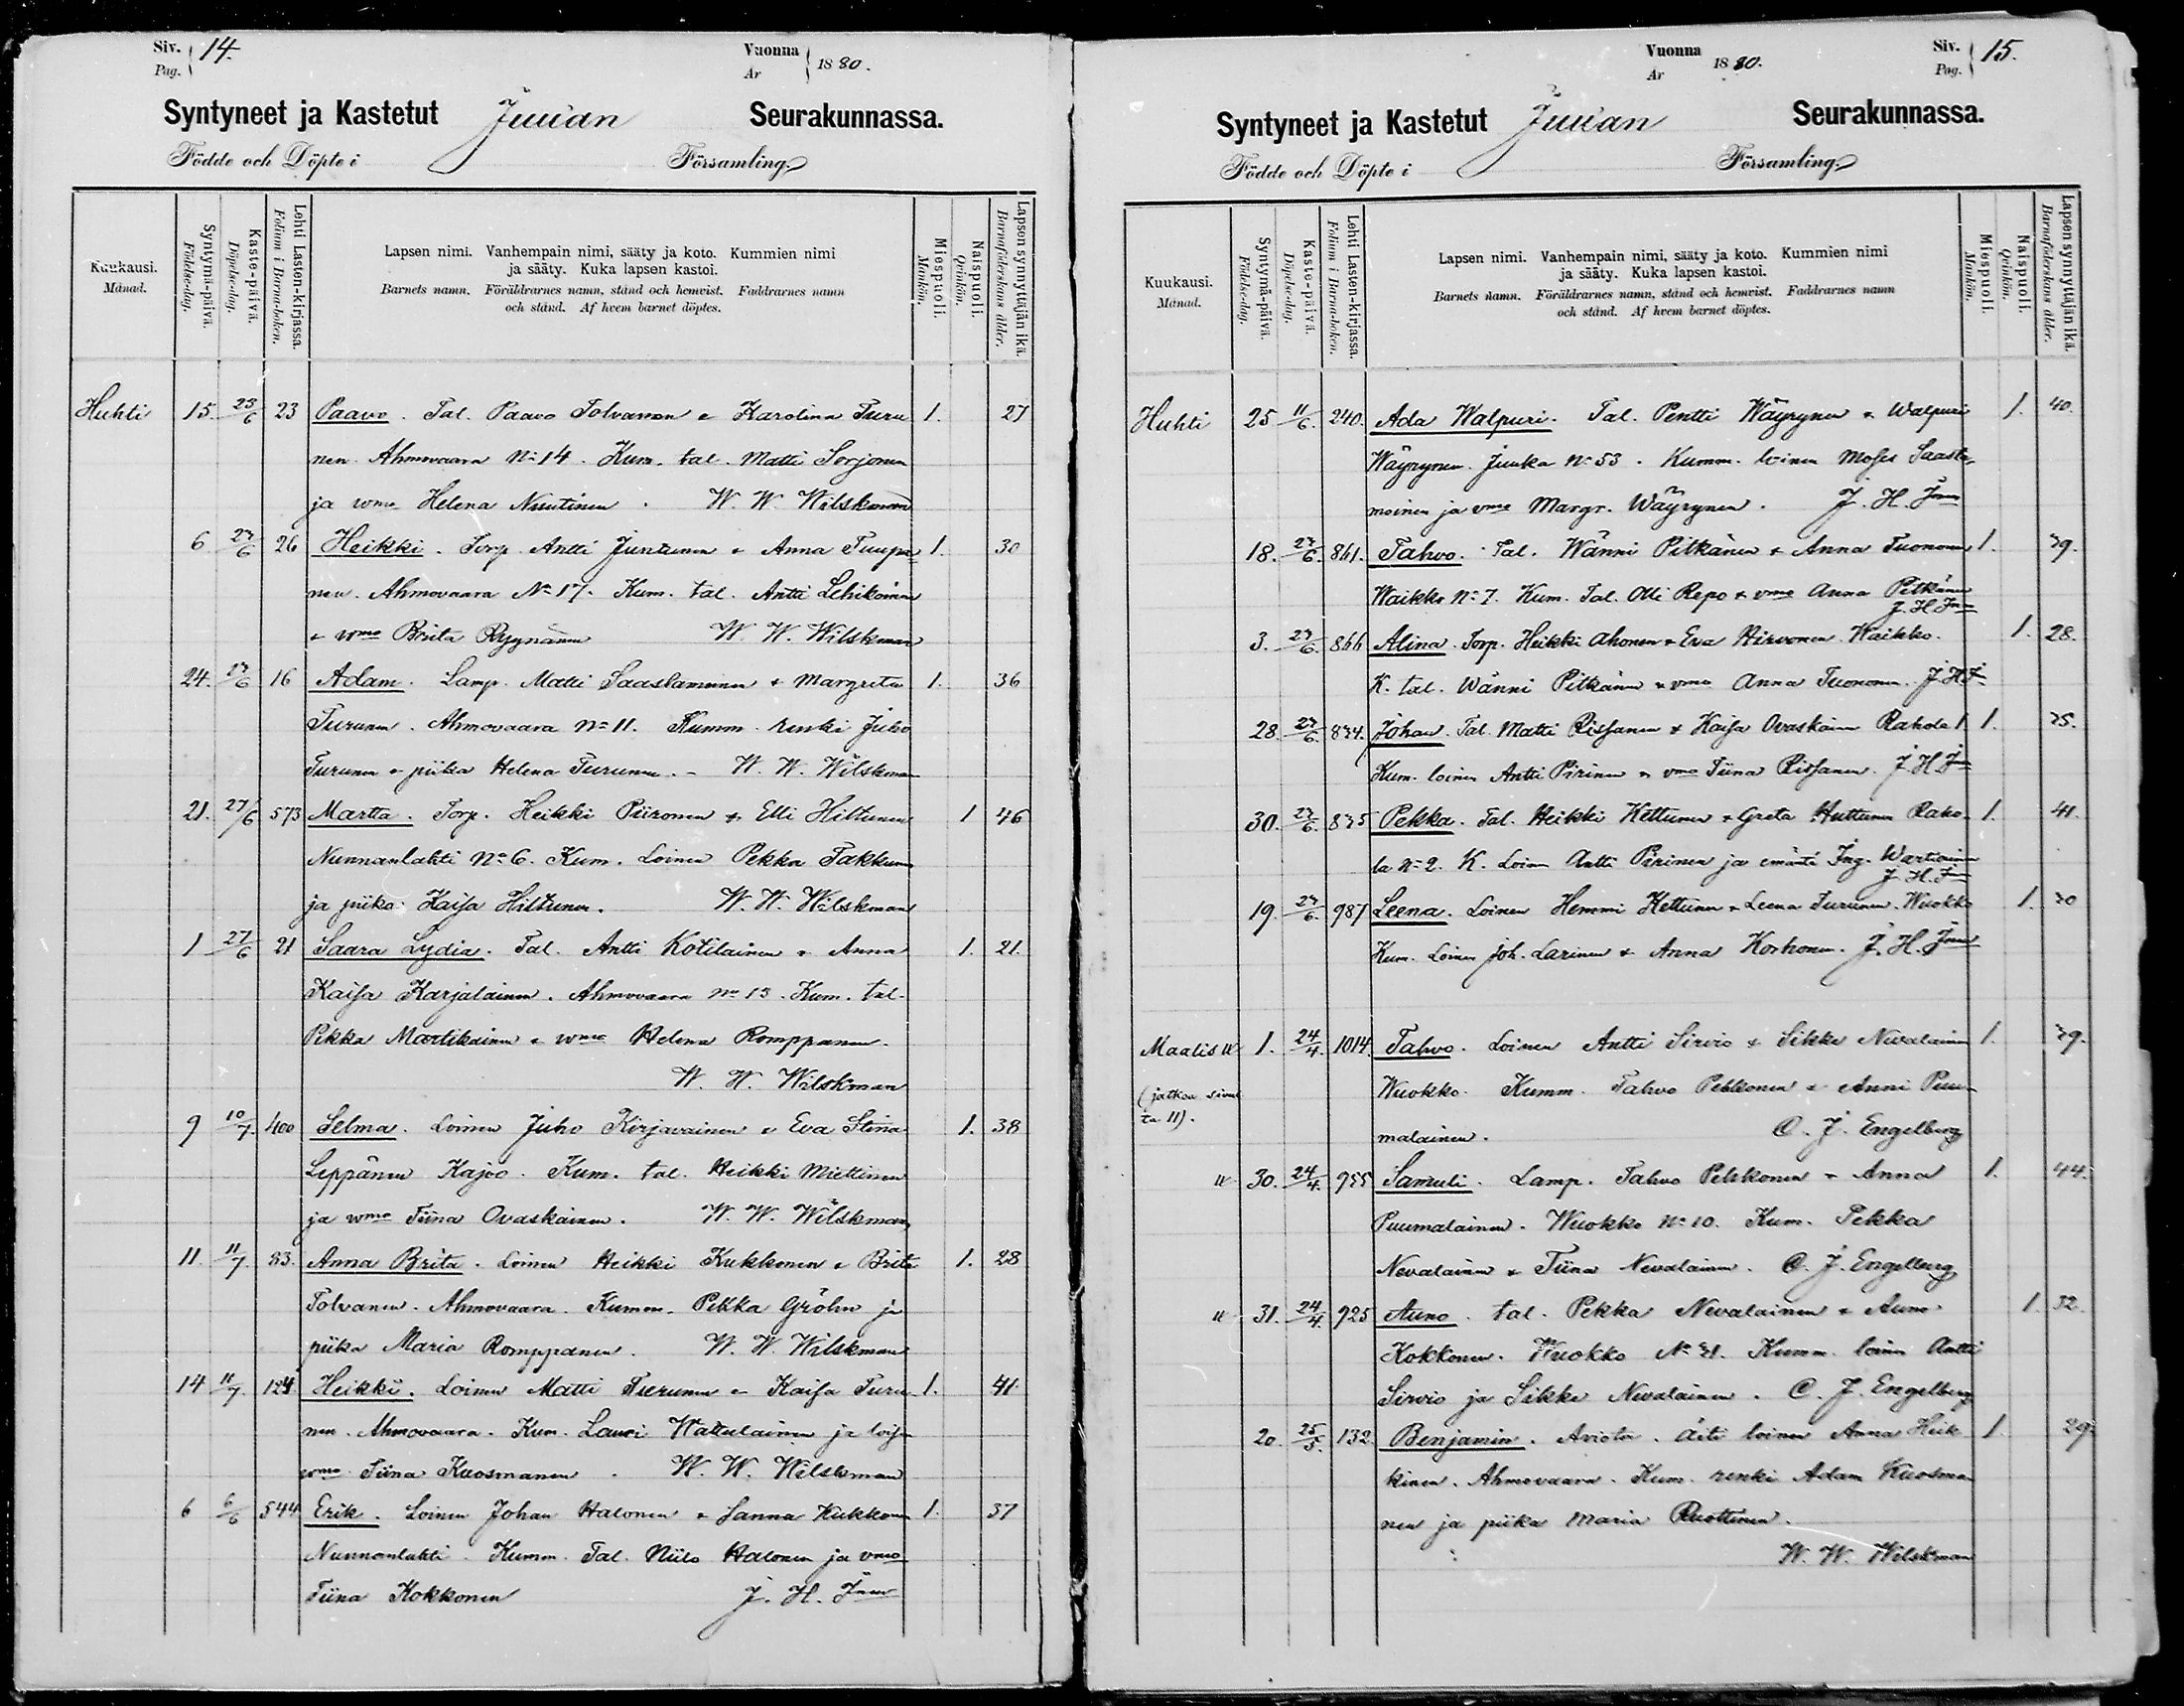 Siv. Pag. 14.
Vuonna År 1880.
Syntyneet ja Kastetut Juuan Seurakunnassa.
Födde och Döpte i Församling.
Kuukausi. Månad.
Syntymä-päivä. Födelse-dag.
Kaste-päivä. Döpelse-dag.
Lehti Lasten-kirjassa. Folium i Barna-boken.
Lapsen nimi. Vanhempain nimi, sääty ja koto. Kummien nimi
ja sääty. Kuka lapsen kastoi.
Barnets namn. Föräldrarnes namn, stånd och hemvist. Faddrarnes namn
och stånd. Af hvem barnet döptes.
Miespuoli. Mankön.
Naispuoli. Qvinkön.
Lapsen synnyttäjän ikä. Barnaföderskans ålder.
Huhti 15. 23/6 23 Paavo. Tal. Paavo Tolvanen & Karolina Turu 1. 27
nen. Ahmovaara No 14. Kum. tal. Matti Sorjonen
ja vmo Helena Nuutinen. W. W. Wilskman
6 27/6 26 Heikki. Torp. Antti Juntunen & Anna Tuupa 1. 30
nen. Ahmovaara No 17. Kum. tal. Antti Lehikoinen
& vmo Briita Ryynänen W. W. Wilskman
24. 27/6 16 Adam. Lamp. Matti Saastamoinen & Margreta 1. 36
Turunen. Ahmovaara No 11. Kumm. renki Juho
Turunen & piika Helena Turunen. - W. W. Wilskman
21. 27/6 573 Martta. Torp. Heikki Piironen & Elli Hiltunen 1 46
Nunnanlahti No 6. Kum. Loinen Pekka Takkunen
ja piika Kaisa Hiltunen. W. W. Wilskman
1 27/6 21 Saara Lydia. Tal. Antti Kotilainen & Anna 1. 21.
Kaisa Karjalainen. Ahmovaara No 13. Kum. tal.
Pekka Martikainen & vmo Helena Romppanen.
W. W. Wilskman
9 10/7. 400 Selma. Loinen Juho Kirjavainen & Eva Stina 1. 38
Leppänen Kajoo. Kum. tal. Heikki Miettinen
ja vmo Tiina Ovaskainen. W. W. Wilskman
11. 11/7. 83. Anna Brita. Loinen Heikki Kukkonen & Brita 1. 28
Tolvanen. Ahmovaara. Kumm. Pekka Gröhn ja
piika Maria Romppanen. W. W. Wilskman
14 11/7. 124 Heikki. Loinen Matti Turunen & Kaisa Turu 1. 41
nen. Ahmovaara. Kum. Lauri Wattulainen ja
vmo Tiina Kuosmanen. W. W. Wilskman
6 6/6 544 Erik. Loinen Johan Halonen & Sanna Kukkonen 1. 37
Nunnanlahti. Kumm. Tal. Niilo Halonen ja vmo
Tiina Kokkonen J. H.
Siv. Pag. 15.
Vuonna År 1880.
Syntyneet ja Kastetut Juuan Seurakunnassa.
Födde och Döpte i Församling.
Kuukausi. Månad.
Syntymä-päivä. Födelse-dag.
Kaste-päivä. Döpelse-dag.
Lehti Lasten-kirjassa. Folium i Barna-boken.
Lapsen nimi. Vanhempain nimi, sääty ja koto. Kummien nimi
ja sääty. Kuka lapsen kastoi.
Barnets namn. Föräldrarnes namn, stånd och hemvist. Faddrarnes namn
och stånd. Af hvem barnet döptes.
Miespuoli. Mankön.
Naispuoli. Qvinkön.
Lapsen synnyttäjän ikä. Barnaföderskans ålder.
Huhti 25 11/6. 240. Ada Walpuri. Tal. Pentti Wäyrynen & Walpuri 1. 40.
Wäyrynen. Juuka No 53. Kumm. loinen Moses Saasta-
moinen ja vmo Margr. Wäyrynen. J. H.
18. 27/6. 861. Tahvo. Tal. Wänni Pitkänen & Anna Tuononen 1. 39.
Waikko No 7. Kum. Tal. Olli Repo & vmo Anna Pitkänen
J. H.
3. 27/6. 866 Alina. Torp. Heikki Ahonen & Eva Hirvonen. Waikko. 1. 28.
K. tal. Wänni Pitkänen & vmo Anna Tuononen. J. H.
28. 27/6. 834. Johan. Tal. Matti Rissanen & Kaisa Ovaskainen Rahola 1 1. 35.
Kum. loinen Antti Pirinen & vmo Tiina Rissanen. J. H.
30. 27/6. 835 Pekka. Tal. Heikki Kettunen & Greta Huttunen Raho- 1. 41.
la No 2. K. Loinen Antti Pirinen ja emäntä Ing. Wartiainen
J. H.
19. 27/6. 987 Leena. Loinen Hemmi Kettunen & Leena Turunen. Wuokko 1. 30
Kum. Loinen Joh. Larinen & Anna Korhonen. J. H.
Maalis 1. 24/4. 1014 Tahvo. Loinen Antti Sirviö & Sikke Nevalainen 1. 39.
Wuokko. Kumm. Tahvo Pehkonen & Anni Puu-
(jatkoa sivulta 11).
malainen. C. J. Engelberg
" 30. 24/4. 955 Samuli. Lamp. Tahvo Pehkonen & Anna 1. 44.
Puumalainen. Wuokko No 10. Kum. Pekka
Nevalainen & Tiina Nevalainen. C. J. Engelberg
" 31. 24/4. 925 Auno. tal. Pekka Nevalainen & Auno 1. 32.
Kokkonen. Wuokko No 31. Kumm. loinen Antti
Sirviö ja Sikke Nevalainen. C. J. Engelberg
20. 25/5. 132 Benjamin. Aviotон. Äiti loinen Anna Heik 1. 29.
kinen. Ahmovaara. Kum. renki Adam Kuosma
nen ja piika Maria Ruottinen.
W. W. Wilskman